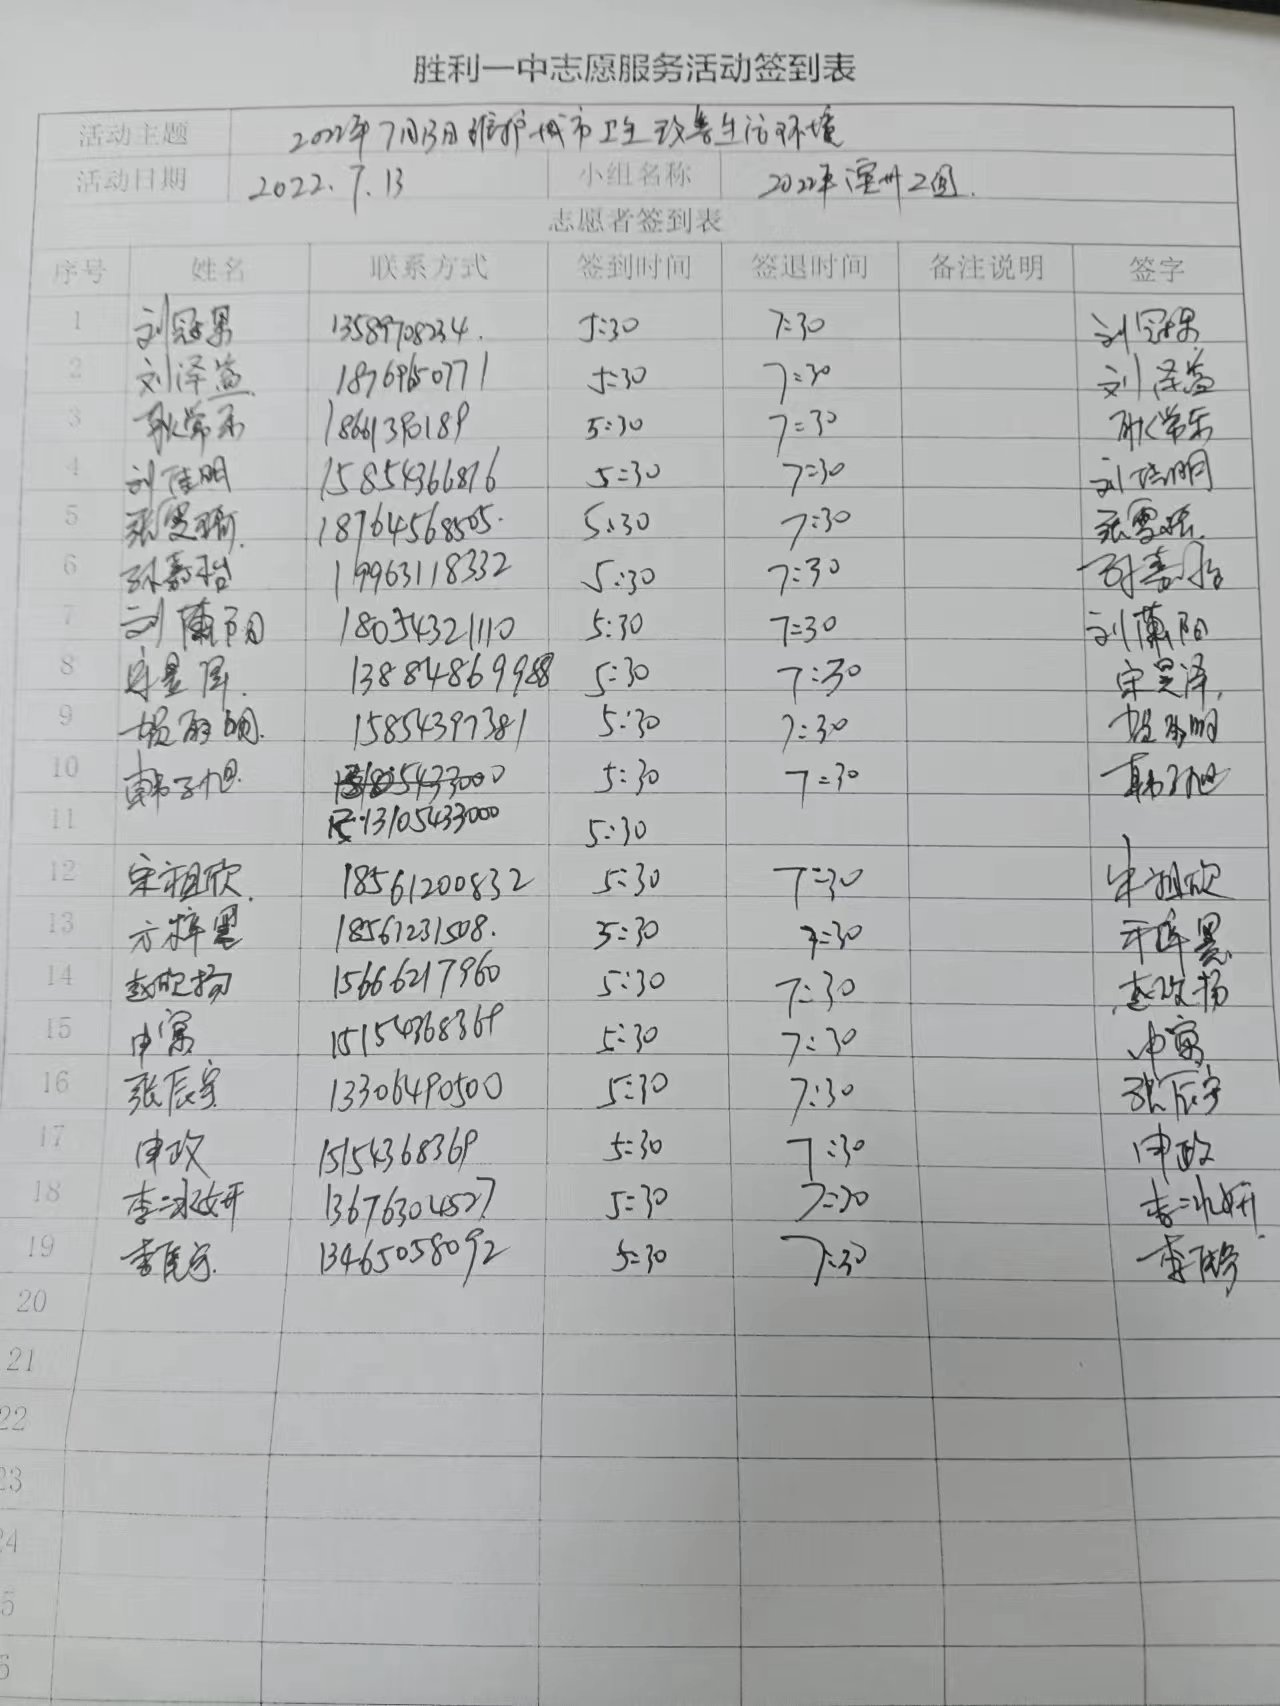 胜利一中志愿服务活动签到表
活动主题 2022年7月13日维护城市卫生改善生活环境
活动日期 2022.7.13 小组名称 2022年滨州工园.
志愿者签到表
序号 姓名 联系方式 签到时间 签退时间 备注说明 签字
1 刘冠男 13589708234. 5:30 7:30 刘冠男
2 刘泽益 18769650771 5:30 7:30 刘泽益
3 耿常乐 18661390189 5:30 7:30 耿常乐
4 刘佳明 15854366816 5:30 7:30 刘佳明
5 张雯 18764568505. 5:30 7:30 张雯
6 孙嘉怡 19963118332 5:30 7:30 孙嘉怡
7 刘蕙阳 18054321110 5:30 7:30 刘蕙阳
8 宋昱泽. 13884869988 5:30 7:30 宋昱泽.
9 15854397381 5:30 7:30
10 韩子旭 5:30 7:30 韩子旭
11 13105433000 5:30
12 宋祖欣. 18561200832 5:30 7:30 宋祖欣
13 方梓墨 18561231508. 5:30 7:30 方梓墨
14 赵欣扬 15666217960 5:30 7:30 赵欣扬
15 申寓 15154368369 5:30 7:30 申寓
16 张辰宇 13306490500 5:30 7:30 张辰宇
17 申政 15154368369 5:30 7:30 申政
18 李冰妍 13676304527 5:30 7:30 李冰妍
19 李 13465058092 5:30 7:30 李
20
21
22
23
24
5
6